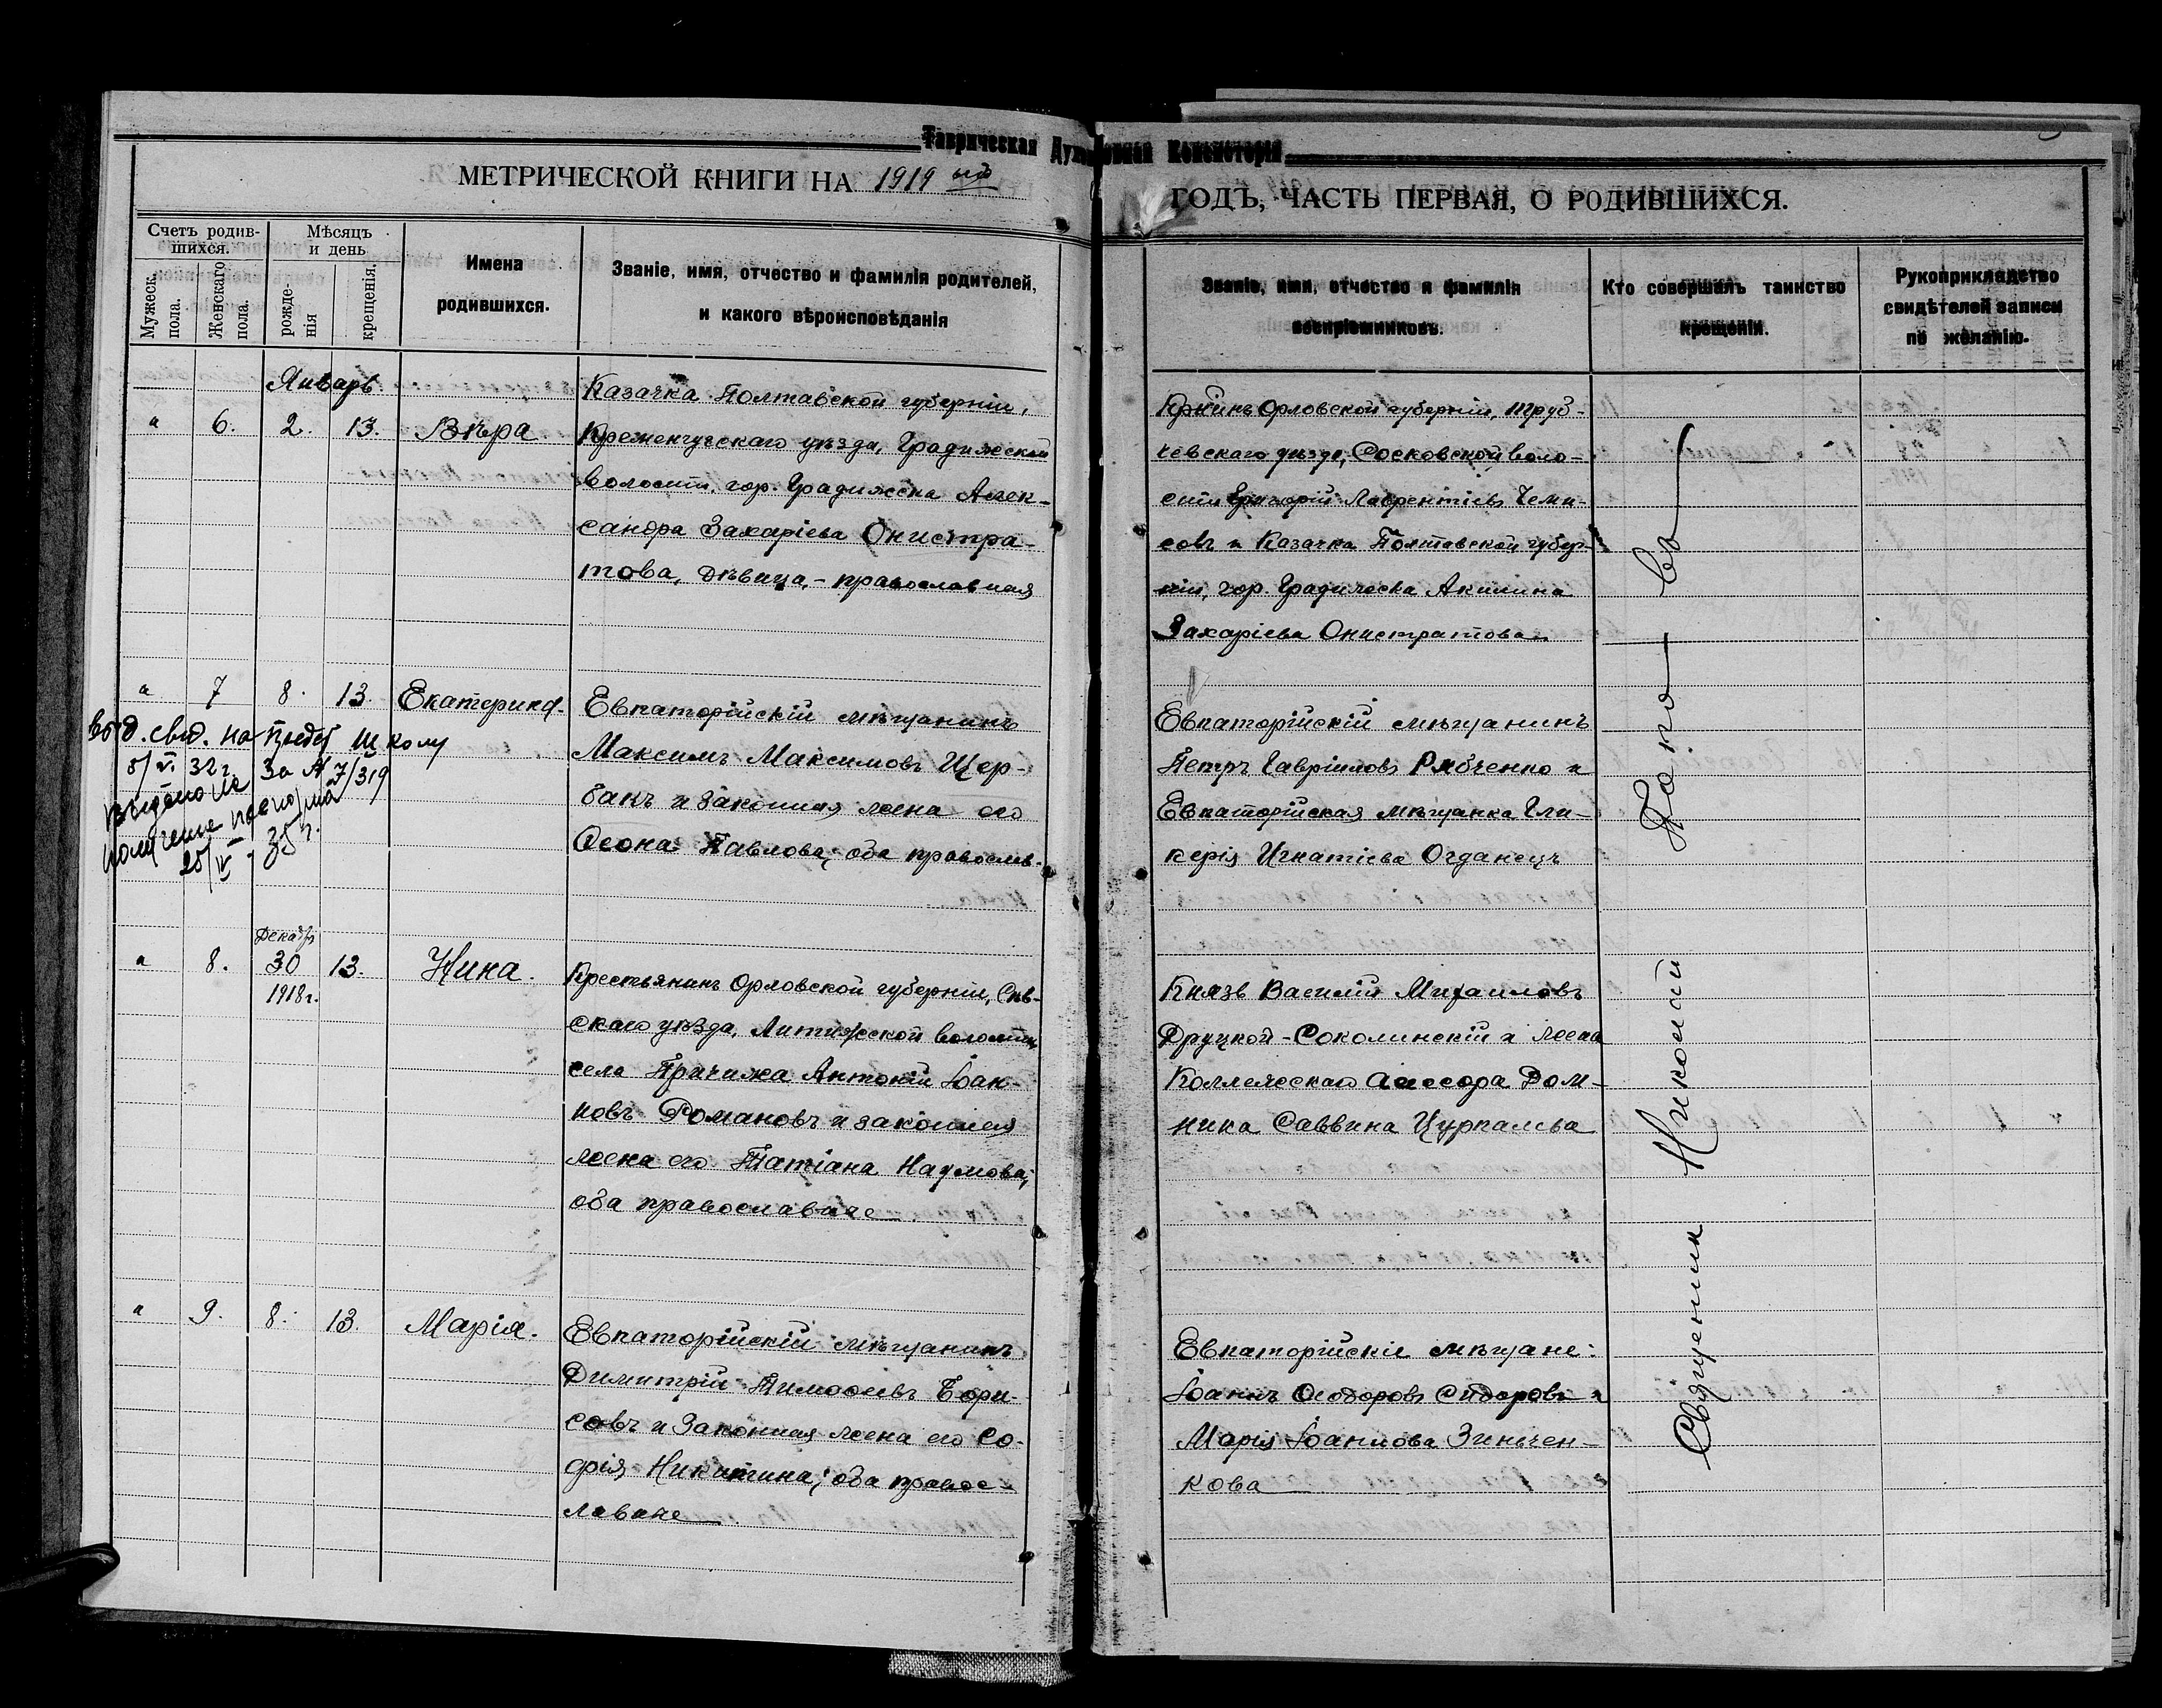 Таврическая Духовная Консисторія
МЕТРИЧЕСКОЙ КНИГИ НА 1919 ый
ГОДЪ, ЧАСТЬ ПЕРВАЯ, О РОДИВШИХСЯ.
Счетъ родив-
шихся.
Мужеск. пола.
Женскаго пола.
Мѣсяцъ
и день
рожде-
нія
крещенія.
Имена
родившихся.
Званіе, имя, отчество и фамилія родителей,
и какого вѣроисповѣданія
Званіе, имя, отчество и фамилія
воспріемниковъ.
Кто совершалъ таинство
крещенія.
Рукоприкладство
свидѣтелей записи
по желанію.
Январь
6. 2. 13. Вѣра
Казачка Полтавской губерніи,
Кременчугскаго уѣзда, Градижской
волости, гор. Градижска Алек-
сандра Захаріева Онистра-
това, дѣвица, - православная
Кр-нинъ Орловской губерніи, Труб-
чевскаго уѣзда, Сосковской воло-
сти Григорій Лаврентіевъ
и Казачка Полтавской губер-
ніи, гор. Градижска Акилина
Захаріева Онистратова
7 8. 13. Екатерина.
Евпаторійскій мѣщанинъ
Максимъ Максимовъ Щер-
бакъ и законная жена его
Ѳеона Павлова; оба православ-
Евпаторійскій мѣщанинъ
Петръ Гавріиловъ Рябченко и
Евпаторійская мѣщанка Гли-
керія Игнатіева Огданецъ
Выд. свид. на школу
8/VI 32 г. За № 7/319
получение паспорта
25/IV 35 г.
Декабр.
8. 30 13. Нина.
1918 г.
Крестьянинъ Орловской губерніи, Сѣв-
скаго уѣзда, Литижской волости,
села Причижа Антоній Іоан-
новъ Романовъ и законная
жена его Татіана Наумова,
оба православные
Князь Василій Михаиловъ
Друцкой-Соколинскій и жена
Коллежскаго Асессора Дом-
ника Саввина Цуркалева
9. 8. 13. Марія.
Евпаторійскій мѣщанинъ
Димитрій Тимоѳеевъ Бори-
совъ и Законная жена его Со-
фія Никитина; оба правос-
лавные
Евпаторійскіе мѣщане:
Іоаннъ Ѳеодоровъ Сидоровъ и
Марія Іоаннова Зинчен-
кова
Священник Николай